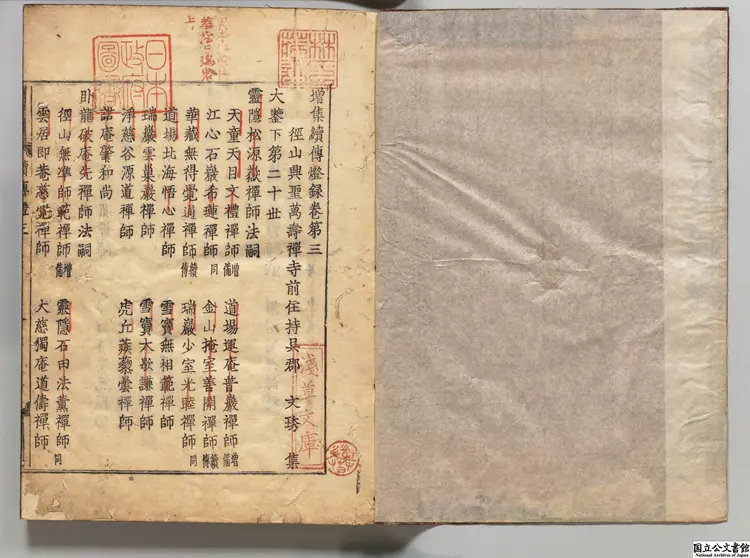 增集續傳燈錄卷第三
徑山興聖萬壽禪寺前住持吳郡 文琇 集
大鑒下第二十世
靈隱松源嶽禪師法嗣
天童天目文禮禪師增備 道場運庵普巖禪師增備
江心石巖希璉禪師同 金山掩室善開禪師續傳
華藏無得覺通禪師續傳 瑞巖少室光睦禪師同
道場北海悟心禪師 雪竇無相範禪師
瑞巖雲巢巖禪師 雪竇大歇謙禪師
淨慈谷源道禪師 虎丘蒺藜曇禪師
諾庵肇和尚
卧龍破庵先禪師法嗣
徑山無準師範禪師增備 靈隱石田法薰禪師同
雲居即菴慈覺禪師 大慈獨庵道儔禪師
日本政府圖書
淺草文庫
国立公文書館
National Archives of Japan